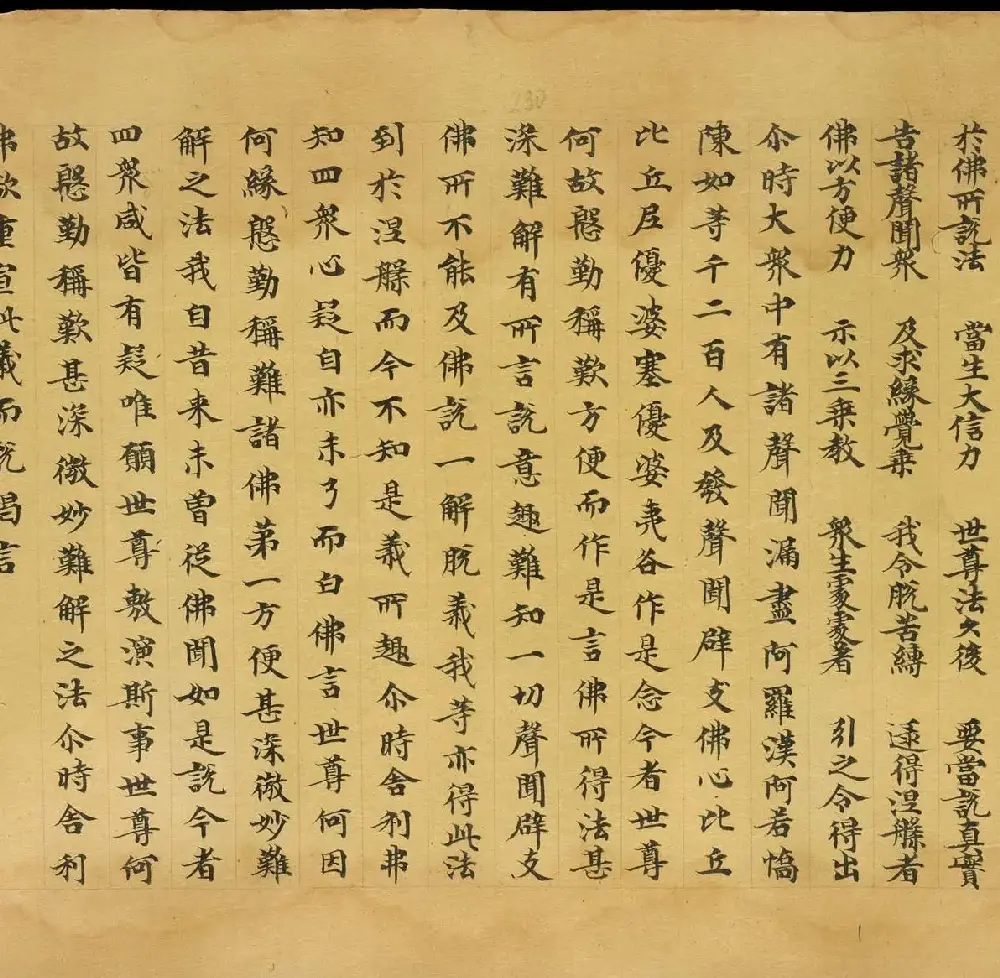 於佛所說法　當生大信力　世尊法久後　要當說真實
告諸聲聞衆　及求緣覺乗　我令脫苦縛　逮得涅槃者
佛以方便力　示以三乗教　衆生䖏䖏著　引之令得出
尒時大衆中有諸聲聞漏盡阿羅漢阿若憍
陳如等千二百人及發聲聞辟支佛心比丘
比丘尼優婆塞優婆夷各作是念今者世尊
何故慇勤稱歎方便而作是言佛所得法甚
深難解有所言說意趣難知一切聲聞辟支
佛所不能及佛說一解脫義我等亦得此法
到於涅槃而今不知是義所趣尒時舍利弗
知四衆心疑自亦未了而白佛言世尊何因
何緣慇勤稱難諸佛第一方便甚深微妙難
解之法我自昔来未曽從佛聞如是說今者
四衆咸皆有疑唯願世尊敷演斯事世尊何
故慇勤稱歎甚深微妙難解之法尒時舍利
弗欲重宣此義而說偈言
230